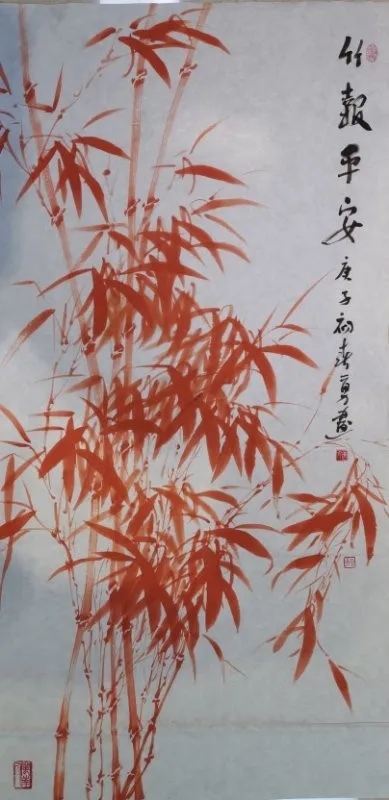 竹報平安
庚子初春勇畫